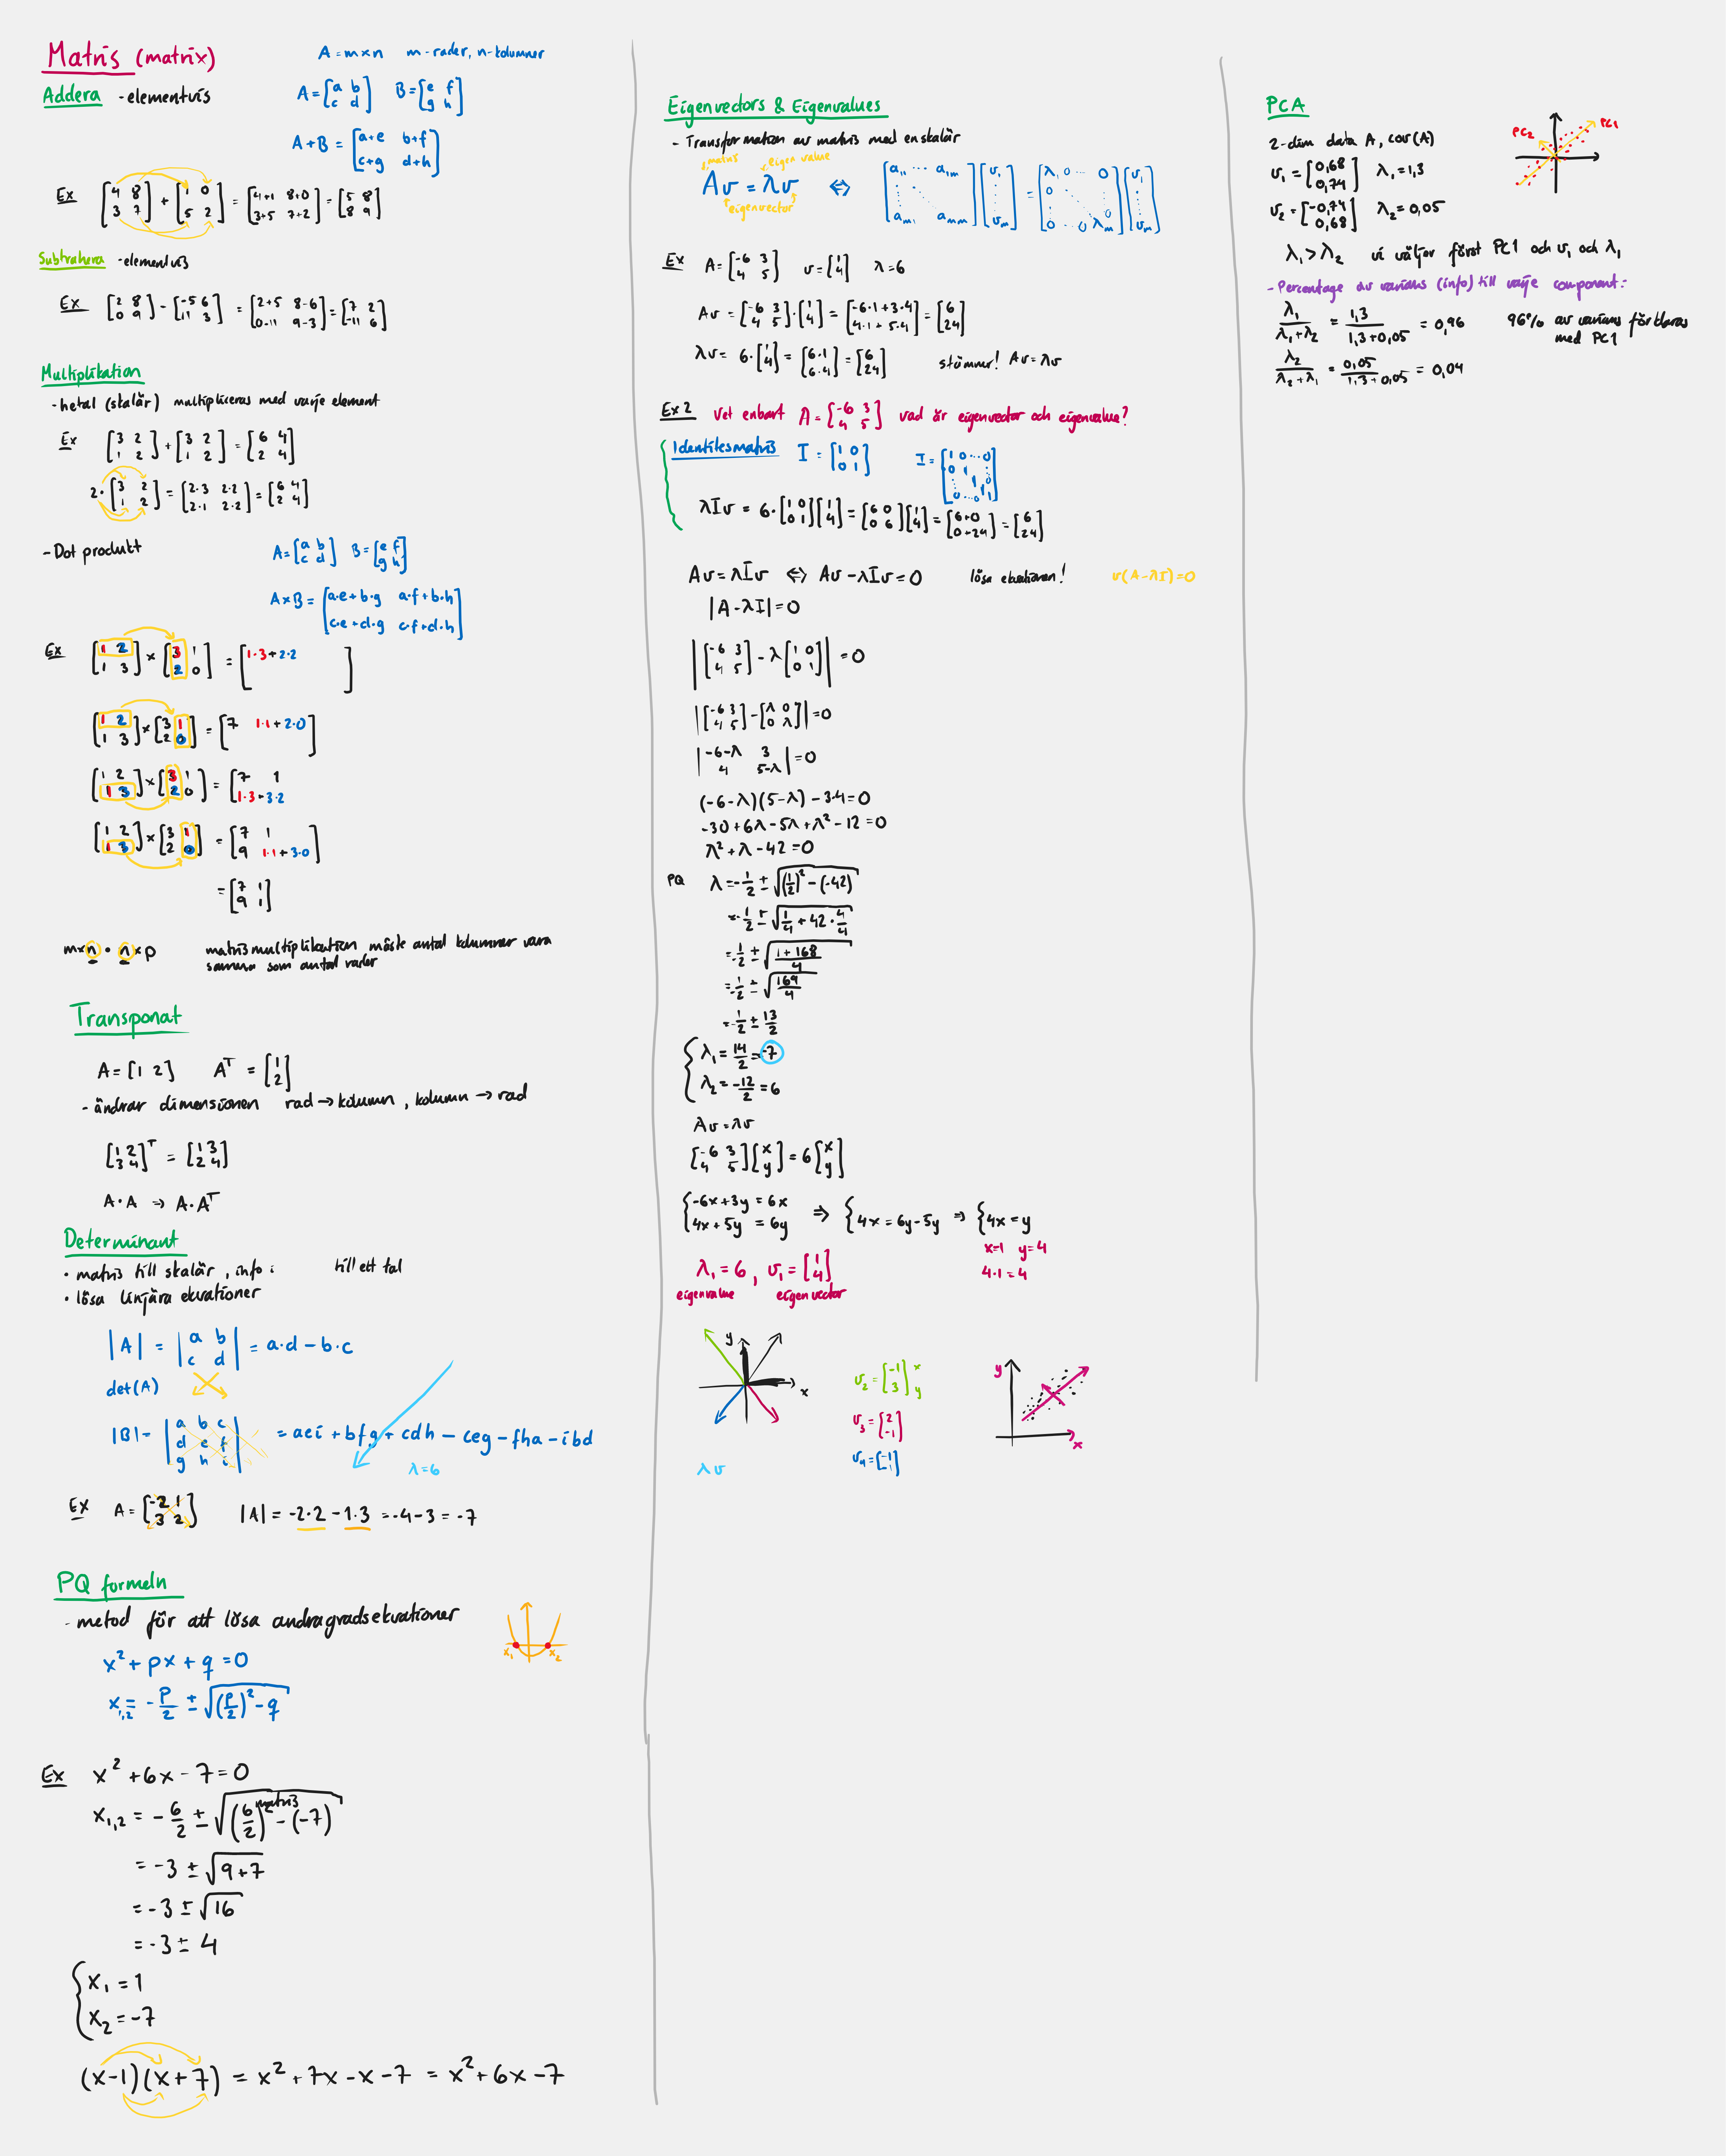 Matris (matrix)
A = m×n   m - rader, n-kolumner
Addera - elementvis
A = [a b; c d]   B = [e f; g h]
A+B = [a+e b+f; c+g d+h]
Ex [4 8; 3 7] + [1 0; 5 2] = [4+1 8+0; 3+5 7+2] = [5 8; 8 9]
Subtrahera - elementvis
Ex [2 8; 0 9] - [-5 6; 11 3] = [2+5 8-6; 0-11 9-3] = [7 2; -11 6]
Multiplikation
- heltal (skalär) multipliceras med varje element
Ex [3 2; 1 2] + [3 2; 1 2] = [6 4; 2 4]
2·[3 2; 1 2] = [2·3 2·2; 2·1 2·2] = [6 4; 2 4]
- Dot produkt
A = [a b; c d]   B = [e f; g h]
A×B = [a·e+b·g a·f+b·h; c·e+d·g c·f+d·h]
Ex [1 2; 1 3] × [3 1; 2 0] = [1·3+2·2 ]
[1 2; 1 3] × [3 1; 2 0] = [7 1·1+2·0]
[1 2; 1 3] × [3 1; 2 0] = [7 1; 1·3+3·2
[1 2; 1 3] × [3 1; 2 0] = [7 1; 9 1·1+3·0]
= [7 1; 9 1]
m×n · n×p   matrismultiplikation måste antal kolumner vara
samma som antal rader
Transponat
A = [1 2]   Aᵀ = [1; 2]
- ändrar dimensionen rad → kolumn, kolumn → rad
[1 2; 3 4]ᵀ = [1 3; 2 4]
A·A → A·Aᵀ
Determinant
• matris till skalär, info i till ett tal
• lösa linjära ekvationer
|A| = |a b; c d| = a·d - b·c
det(A)
|B| = |a b c; d e f; g h i| = aei + bfg + cdh - ceg - fha - ibd
λ=6
Ex A = [-2 1; 3 2]   |A| = -2·2 - 1·3 = -4-3 = -7
PQ formeln
- metod för att lösa andragradsekvationer
x₁ x₂
x² + px + q = 0
x₁,₂ = -p/2 ± √((p/2)² - q)
Ex x² + 6x - 7 = 0
matris
x₁,₂ = -6/2 ± √((6/2)² - (-7))
= -3 ± √(9+7)
= -3 ± √16
= -3 ± 4
{ x₁ = 1
x₂ = -7
(x-1)(x+7) = x² + 7x - x - 7 = x² + 6x - 7
Eigenvectors & Eigenvalues
- Transformation av matris med en skalär
matris eigen value
Av = λv ⇔ [a₁₁ ··· a₁ₘ; ⋮ ⋱; aₘ₁ aₘₘ][v₁; ⋮; vₘ] = [λ₁ 0 ··· 0; 0 ⋱ ⋮; ⋮ ⋱ 0; 0 ··· 0 λₘ][v₁; ⋮; vₘ]
eigenvector
Ex A = [-6 3; 4 5]   v = [1; 4]   λ = 6
Av = [-6 3; 4 5]·[1; 4] = [-6·1+3·4; 4·1+5·4] = [6; 24]
λv = 6·[1; 4] = [6·1; 6·4] = [6; 24]   stämmer! Av = λv
Ex 2 Vet enbart A = [-6 3; 4 5] vad är eigenvector och eigenvalue?
Identitesmatris I = [1 0; 0 1]   I = [1 0 ··· 0; 0 1 ⋮; ⋮ 1 ⋮; 0 ··· 0 1]
λIv = 6·[1 0; 0 1][1; 4] = [6 0; 0 6][1; 4] = [6+0; 0+24] = [6; 24]
Av = λIv ⇔ Av - λIv = 0   lösa ekvationen!   v(A-λI)=0
|A - λI| = 0
|[-6 3; 4 5] - λ[1 0; 0 1]| = 0
|[-6 3; 4 5] - [λ 0; 0 λ]| = 0
|-6-λ 3; 4 5-λ| = 0
(-6-λ)(5-λ) - 3·4 = 0
-30 + 6λ - 5λ + λ² - 12 = 0
λ² + λ - 42 = 0
PQ λ = -1/2 ± √((1/2)² - (-42))
= -1/2 ± √(1/4 + 42·4/4)
= -1/2 ± √((1+168)/4)
= -1/2 ± √(169/4)
= -1/2 ± 13/2
{ λ₁ = 14/2 = -7
λ₂ = -12/2 = 6
Av = λv
[-6 3; 4 5][x; y] = 6[x; y]
{ -6x+3y = 6x
4x+5y = 6y ⇒ { 4x = 6y-5y ⇒ { 4x = y
x=1 y=4
4·1=4
λ₁ = 6, v₁ = [1; 4]
eigenvalue eigenvector
y x
v₂ = [-1; 3] x y
v₃ = [2; -1]
v₄ = [-1; -1]
λv
y x
PCA
2-dim data A, cov(A)
PC2 PC1
v₁ = [0,68; 0,74]   λ₁ = 1,3
v₂ = [-0,74; 0,68]   λ₂ = 0,05
λ₁ > λ₂   vi väljer först PC1 och v₁ och λ₁
- Percentage av varians (info) till varje component:
λ₁/(λ₁+λ₂) = 1,3/(1,3+0,05) = 0,96   96% av varians förklaras
med PC1
λ₂/(λ₂+λ₁) = 0,05/(1,3+0,05) = 0,04